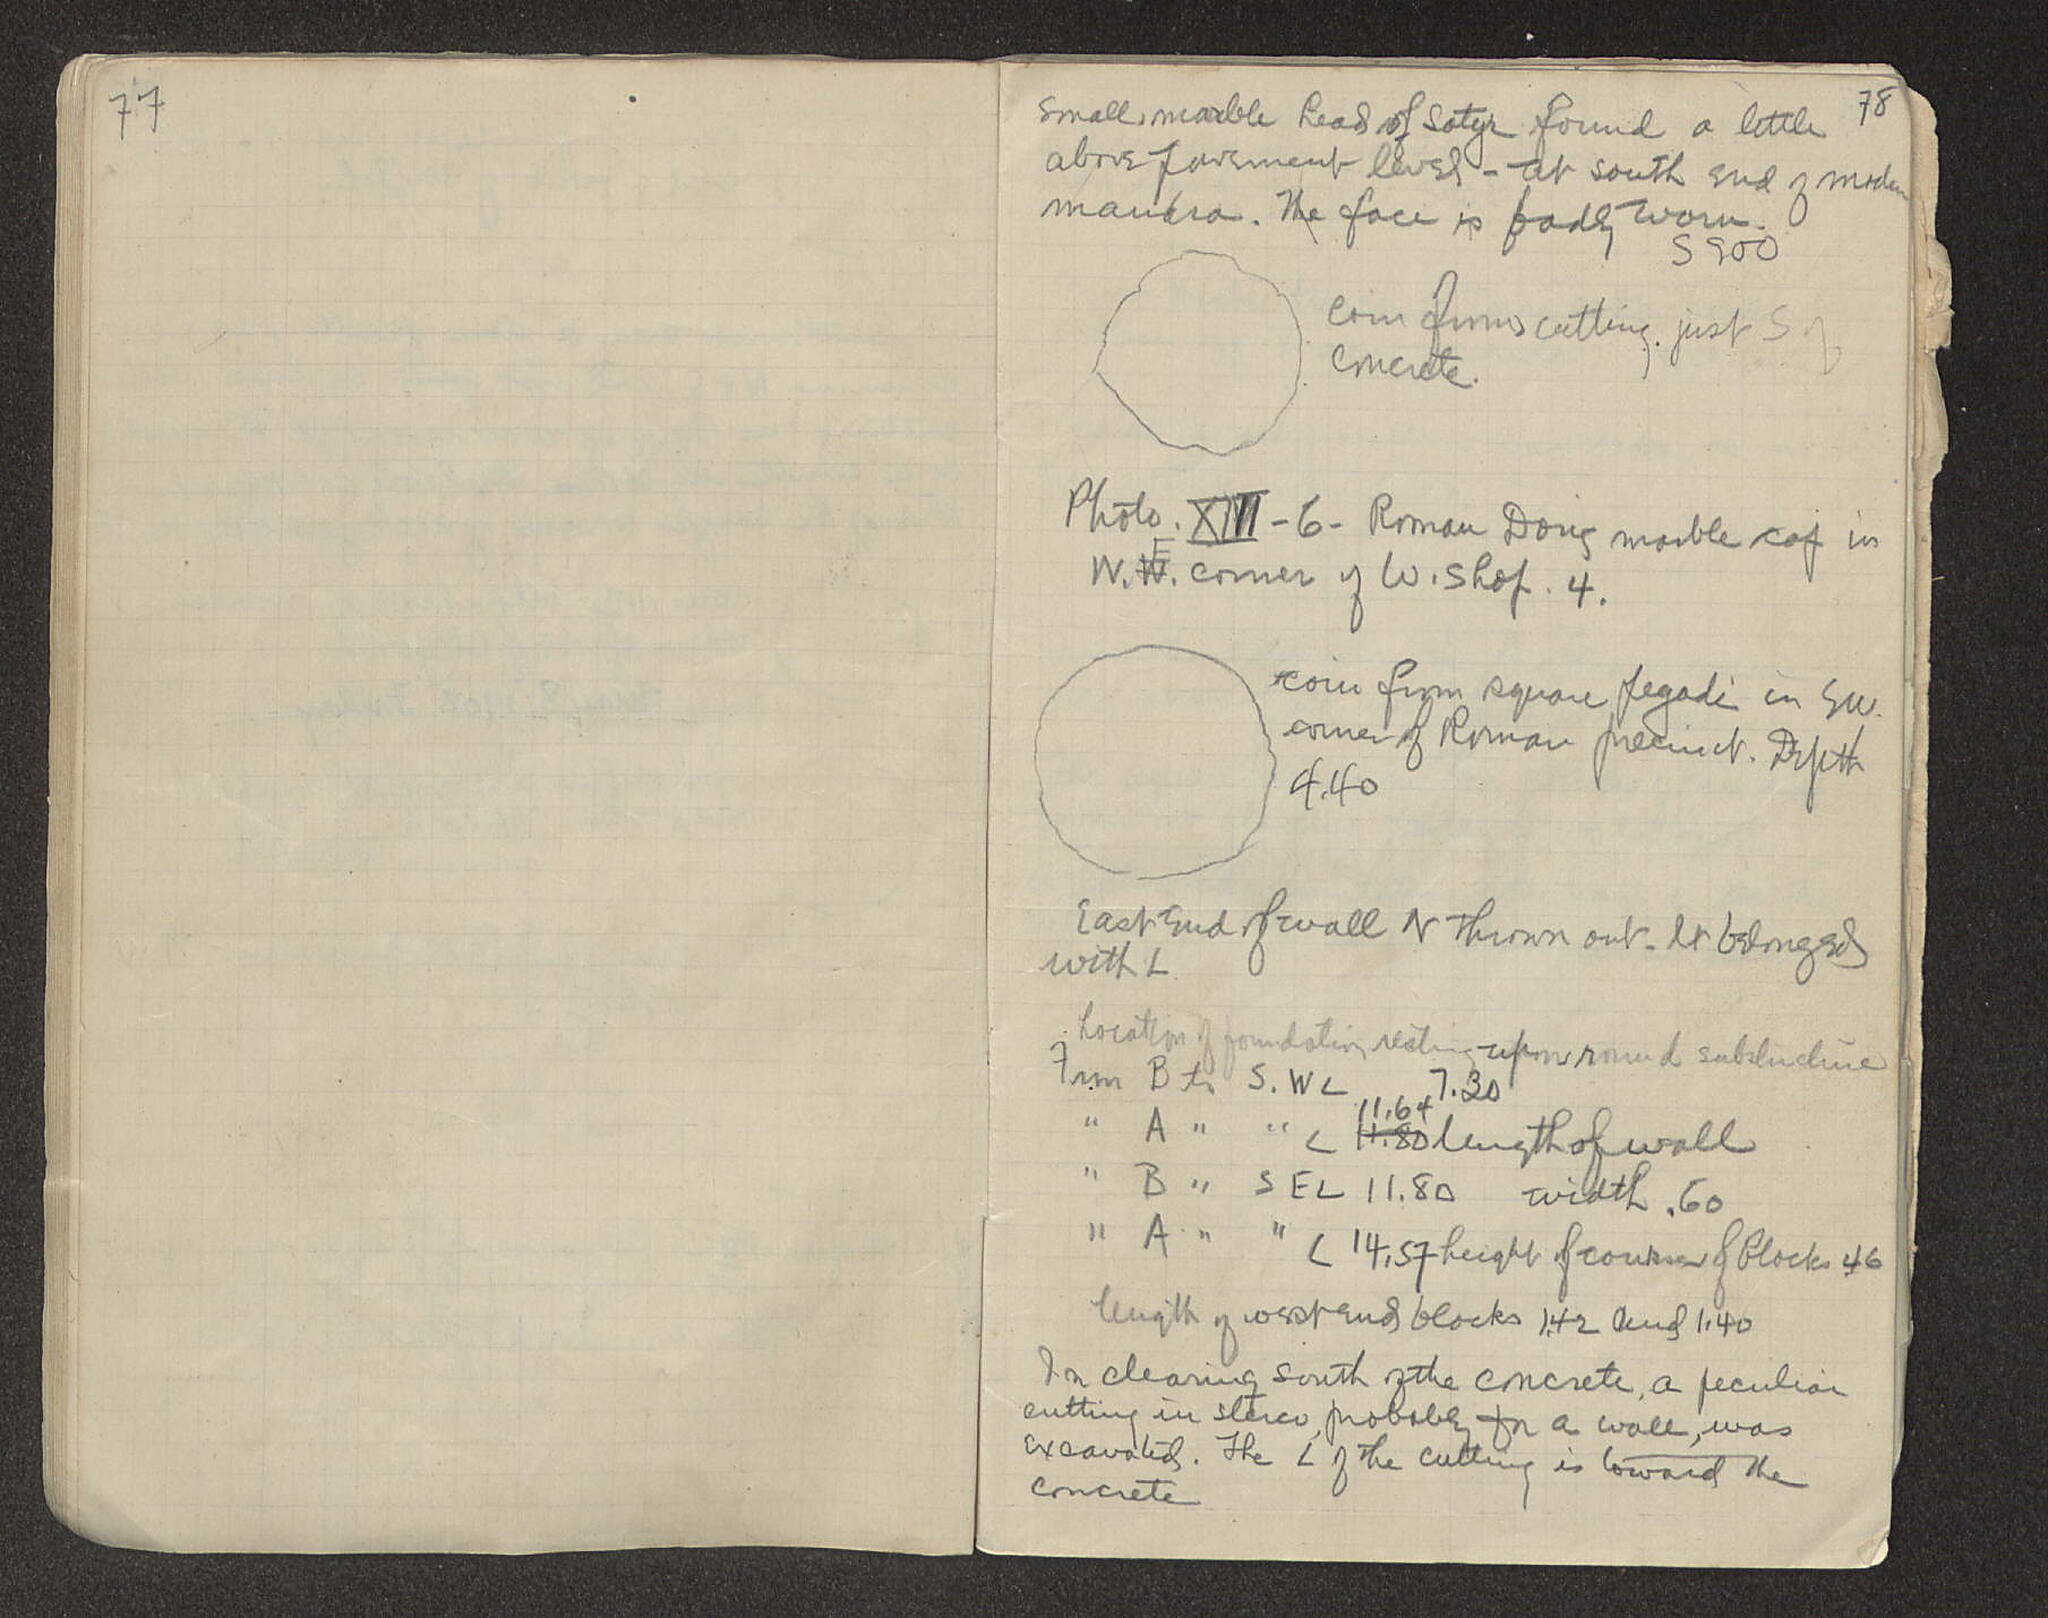 77
78
Small marble head of Satyr found a little
above pavement level - at south end of modern
mandra. The face is badly worn.
S 900
coin from cutting just S of
concrete.
Photo. XIII - 6 - Roman Doric marble cap in
N.E. corner of W. Shop. 4.
coin from square pegadi in SW.
corner of Roman precinct. Depth
4.40
East end of wall N thrown out - It belonged
with L
Location of foundation resting upon round substructure
From B to S. W L 7.30
11.64
" A " " L 11.80 length of wall
" B " S E L 11.80 width .60
" A " " L 14.57 height of courses of blocks 46
length of west end blocks 1.42 and 1.40
In clearing south of the concrete, a peculiar
cutting in stereo, probably for a wall, was
excavated. The L of the cutting is toward the
concrete